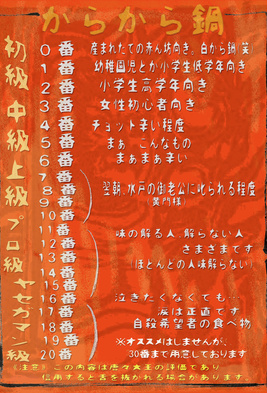 からから鍋
初級 中級 上級 プロ級 ヤセガマン級
0番 産まれたての赤ん坊向き。白から鍋 笑
1番 幼稚園児とか小学生低学年向き
2番 小学生高学年向き
3番 女性初心者向き
4番 チョット辛い程度
5番 まぁ こんなもの
6番 まぁまぁ辛い
7番
8番 翌朝、水戸の御老公に叱られる程度
9番 (黄門様)
10番
11番
12番 味の解る人、解らない人
13番 さまざまです
14番 (ほとんどの人味解らない)
15番
16番 泣きたくなくても…
17番 涙は正直です
18番 自殺希望者の食べ物
19番 ※オススメはしませんが、
20番 30番まで用意しております
(注意) この内容は唐々大王の評価であり
信用すると舌を抜かれる場合があります。